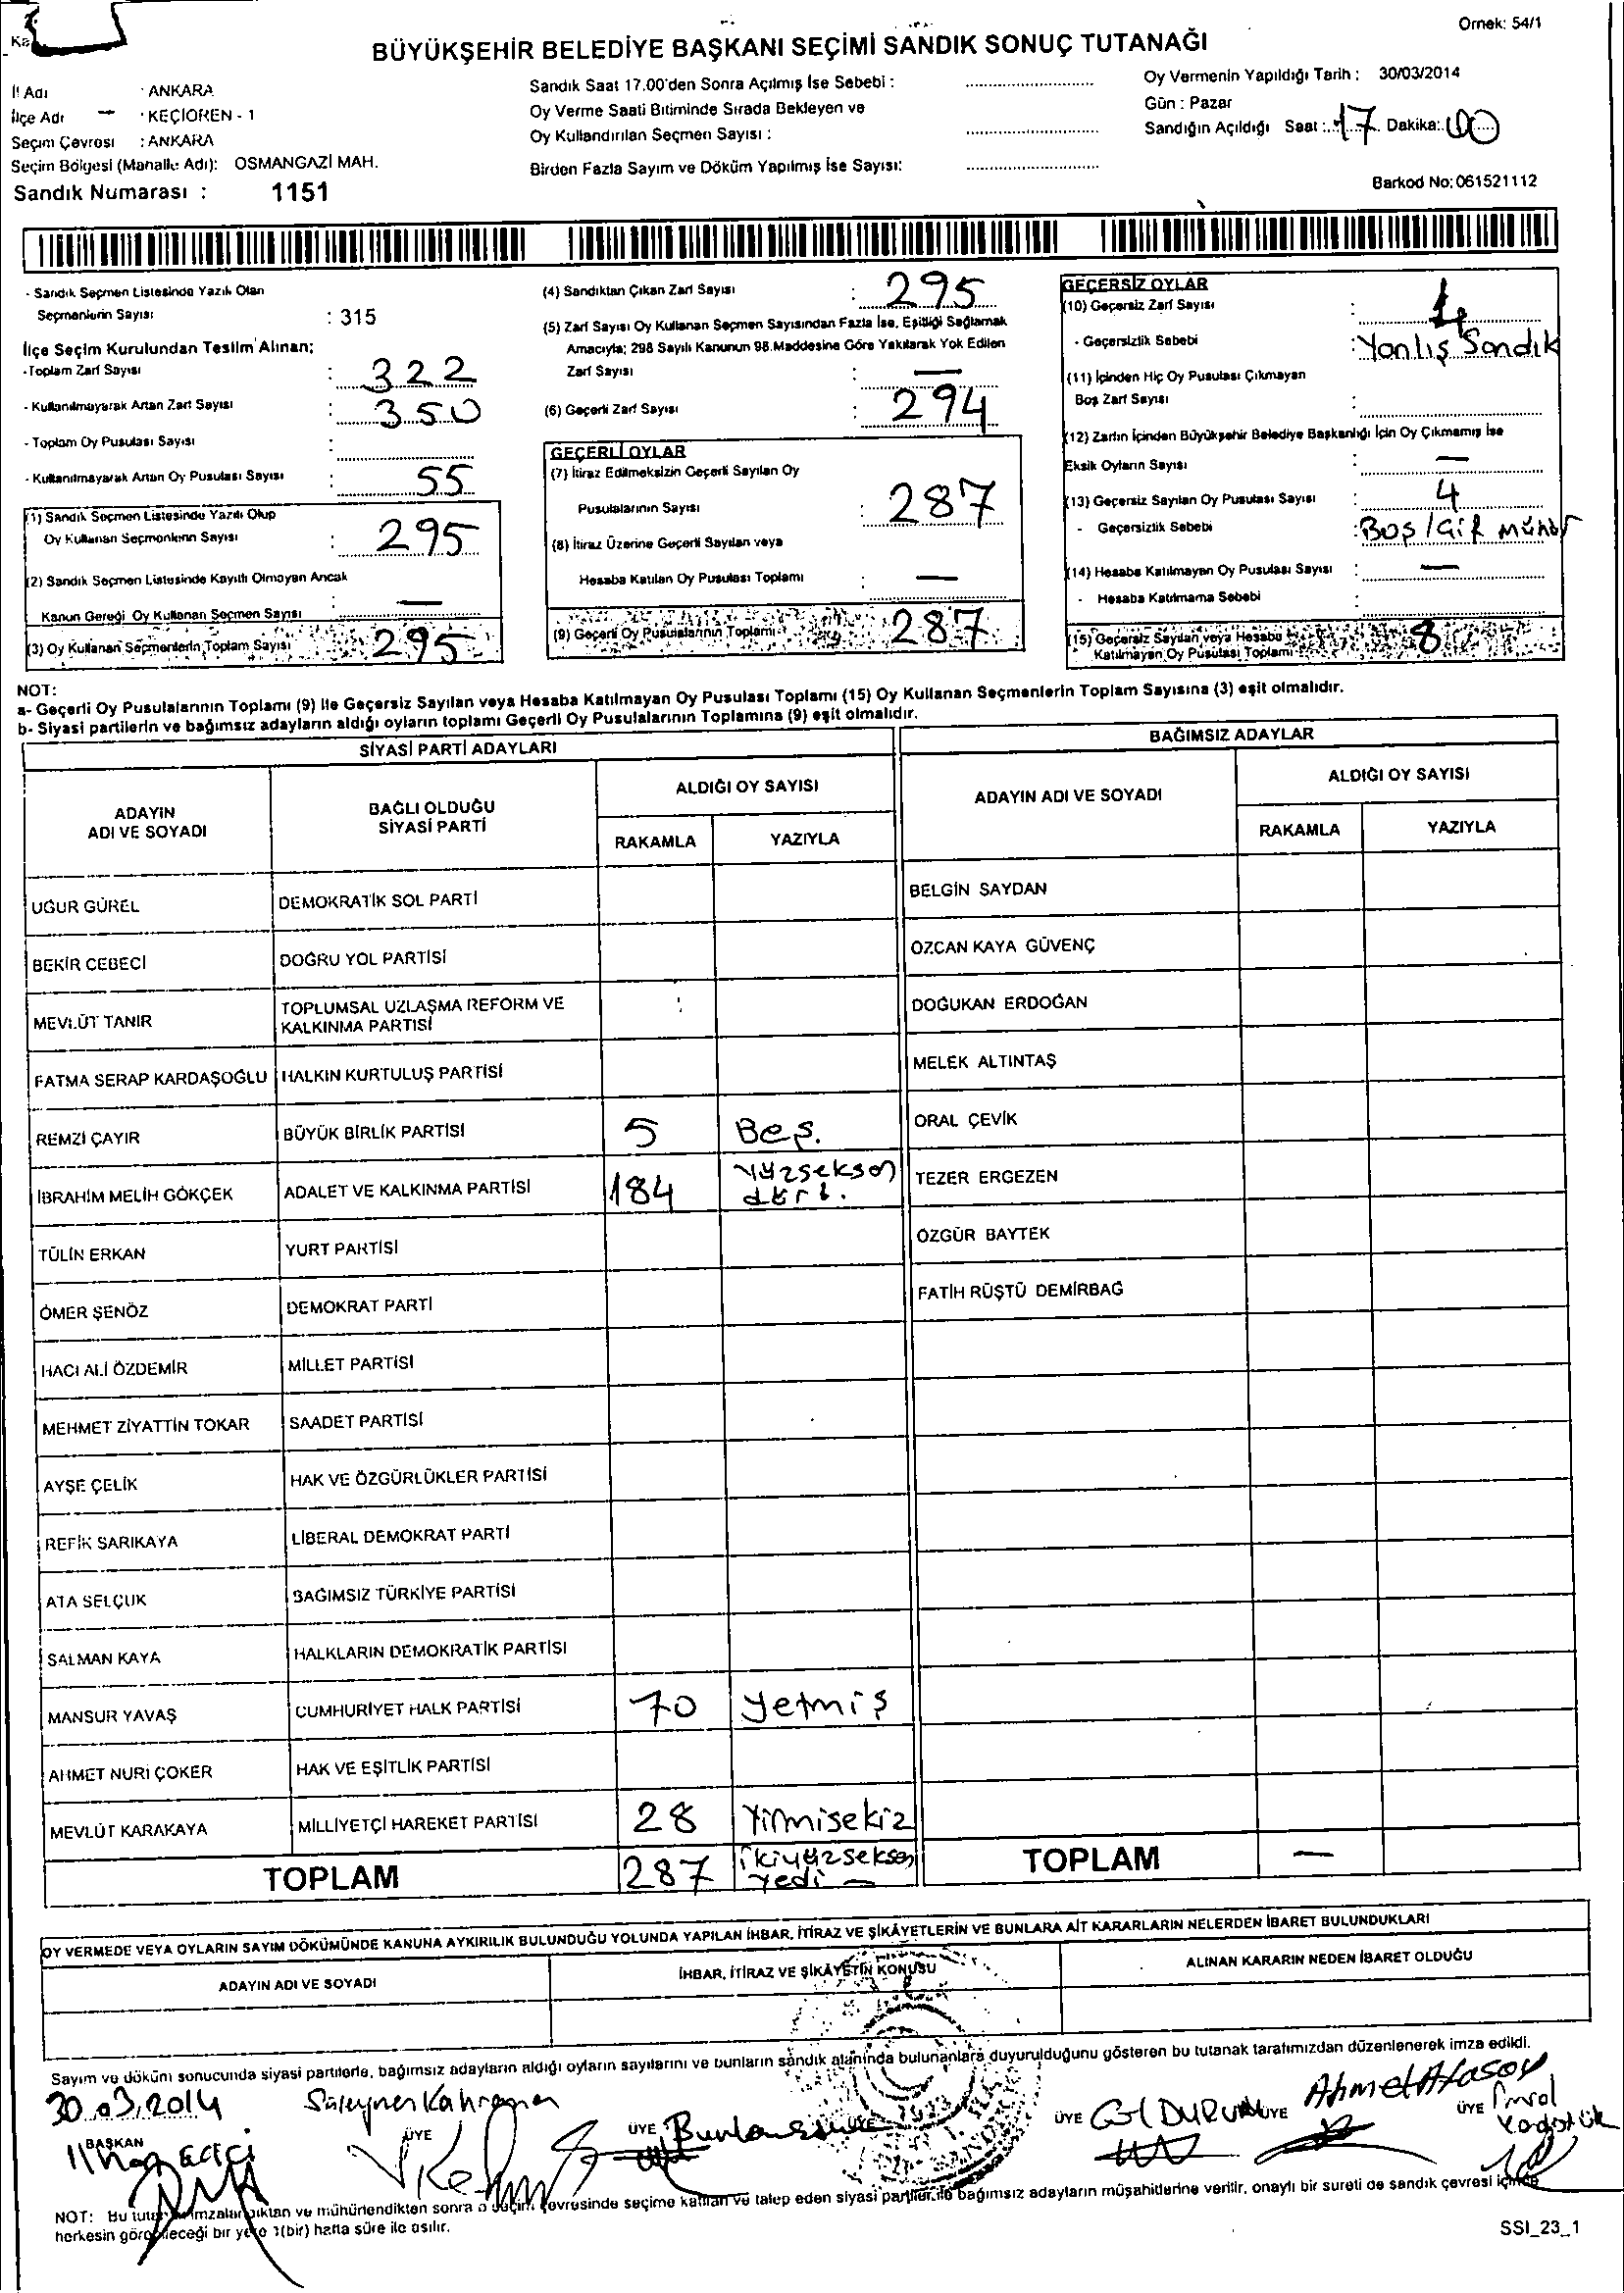 Örnek: 54/1
BÜYÜKŞEHİR BELEDİYE BAŞKANI SEÇİMİ SANDIK SONUÇ TUTANAĞI
İl Adı : ANKARA
İlçe Adı : KEÇİÖREN - 1
Seçim Çevresi : ANKARA
Seçim Bölgesi (Mahalle Adı): OSMANGAZİ MAH.
Sandık Numarası : 1151
Sandık Saat 17.00'den Sonra Açılmış İse Sebebi :
Oy Verme Saati Bitiminde Sırada Bekleyen ve
Oy Kullandırılan Seçmen Sayısı :
Birden Fazla Sayım ve Döküm Yapılmış İse Sayısı:
Oy Vermenin Yapıldığı Tarih : 30/03/2014
Gün : Pazar
Sandığın Açıldığı Saat : 17 Dakika: 00
Barkod No: 061521112
- Sandık Seçmen Listesinde Yazılı Olan
Seçmenlerin Sayısı : 315
İlçe Seçim Kurulundan Teslim Alınan;
- Toplam Zarf Sayısı : 322
- Kullanılmayarak Artan Zarf Sayısı : 350
- Toplam Oy Pusulası Sayısı :
- Kullanılmayarak Artan Oy Pusulası Sayısı : 55
(1) Sandık Seçmen Listesinde Yazılı Olup
Oy Kullanan Seçmenlerin Sayısı : 295
(2) Sandık Seçmen Listesinde Kayıtlı Olmayan Ancak
Kanun Gereği Oy Kullanan Seçmen Sayısı : —
(3) Oy Kullanan Seçmenlerin Toplam Sayısı : 295
(4) Sandıktan Çıkan Zarf Sayısı : 295
(5) Zarf Sayısı Oy Kullanan Seçmen Sayısından Fazla İse, Eşitliği Sağlamak
Amacıyla; 298 Sayılı Kanunun 98.Maddesine Göre Yakılarak Yok Edilen
Zarf Sayısı : —
(6) Geçerli Zarf Sayısı : 294
GEÇERLİ OYLAR
(7) İtiraz Edilmeksizin Geçerli Sayılan Oy
Pusulalarının Sayısı : 287
(8) İtiraz Üzerine Geçerli Sayılan veya
Hesaba Katılan Oy Pusulası Toplamı : —
(9) Geçerli Oy Pusulalarının Toplamı : 287
GEÇERSİZ OYLAR
(10) Geçersiz Zarf Sayısı :
- Geçersizlik Sebebi : Yanlış Sandık
(11) İçinden Hiç Oy Pusulası Çıkmayan
Boş Zarf Sayısı :
(12) Zarfın İçinden Büyükşehir Belediye Başkanlığı İçin Oy Çıkmamış İse
Eksik Oyların Sayısı : —
(13) Geçersiz Sayılan Oy Pusulası Sayısı : 4
- Geçersizlik Sebebi : Boş /Çift Mühür
(14) Hesaba Katılmayan Oy Pusulası Sayısı : —
- Hesaba Katılmama Sebebi :
(15) Geçersiz Sayılan veya Hesaba
Katılmayan Oy Pusulası Toplamı : 8
NOT:
a- Geçerli Oy Pusulalarının Toplamı (9) ile Geçersiz Sayılan veya Hesaba Katılmayan Oy Pusulası Toplamı (15) Oy Kullanan Seçmenlerin Toplam Sayısına (3) eşit olmalıdır.
b- Siyasi partilerin ve bağımsız adayların aldığı oyların toplamı Geçerli Oy Pusulalarının Toplamına (9) eşit olmalıdır.
SİYASİ PARTİ ADAYLARI
ADAYIN ADI VE SOYADI
BAĞLI OLDUĞU SİYASİ PARTİ
ALDIĞI OY SAYISI
RAKAMLA YAZIYLA
UĞUR GÜREL DEMOKRATİK SOL PARTİ
BEKİR CEBECİ DOĞRU YOL PARTİSİ
MEVLÜT TANIR TOPLUMSAL UZLAŞMA REFORM VE KALKINMA PARTİSİ
FATMA SERAP KARDAŞOĞLU HALKIN KURTULUŞ PARTİSİ
REMZİ ÇAYIR BÜYÜK BİRLİK PARTİSİ 5 Beş.
İBRAHİM MELİH GÖKÇEK ADALET VE KALKINMA PARTİSİ 184 Yüzseksen dört.
TÜLİN ERKAN YURT PARTİSİ
ÖMER ŞENÖZ DEMOKRAT PARTİ
HACI ALİ ÖZDEMİR MİLLET PARTİSİ
MEHMET ZİYATTİN TOKAR SAADET PARTİSİ
AYŞE ÇELİK HAK VE ÖZGÜRLÜKLER PARTİSİ
REFİK SARIKAYA LİBERAL DEMOKRAT PARTİ
ATA SELÇUK BAĞIMSIZ TÜRKİYE PARTİSİ
SALMAN KAYA HALKLARIN DEMOKRATİK PARTİSİ
MANSUR YAVAŞ CUMHURİYET HALK PARTİSİ 70 Yetmiş
AHMET NURİ ÇOKER HAK VE EŞİTLİK PARTİSİ
MEVLÜT KARAKAYA MİLLİYETÇİ HAREKET PARTİSİ 28 Yirmisekiz
TOPLAM 287 ikiyüzseksen yedi —
BAĞIMSIZ ADAYLAR
ADAYIN ADI VE SOYADI
ALDIĞI OY SAYISI
RAKAMLA YAZIYLA
BELGİN SAYDAN
ÖZCAN KAYA GÜVENÇ
DOĞUKAN ERDOĞAN
MELEK ALTINTAŞ
ORAL ÇEVİK
TEZER ERGEZEN
ÖZGÜR BAYTEK
FATİH RÜŞTÜ DEMİRBAĞ
TOPLAM —
OY VERMEDE VEYA OYLARIN SAYIM DÖKÜMÜNDE KANUNA AYKIRILIK BULUNDUĞU YOLUNDA YAPILAN İHBAR, İTİRAZ VE ŞİKÂYETLERİN VE BUNLARA AİT KARARLARIN NELERDEN İBARET BULUNDUKLARI
ADAYIN ADI VE SOYADI
İHBAR, İTİRAZ VE ŞİKÂYETİN KONUSU
ALINAN KARARIN NEDEN İBARET OLDUĞU
Sayım ve döküm sonucunda siyasi partilerle, bağımsız adayların aldığı oyların sayılarını ve bunların sandık alanında bulunanlara duyurulduğunu gösteren bu tutanak tarafımızdan düzenlenerek imza edildi.
30.03.2014
Süleyman Kahraman
Ahmet Atasoy
BAŞKAN
ÜYE
ÜYE
ÜYE
ÜYE
ÜYE
ÜYE
NOT: Bu tutanak imzalandıktan ve mühürlendikten sonra o seçim çevresinde seçime katılan ve talep eden siyasi partiler ile bağımsız adayların müşahitlerine verilir, onaylı bir sureti de sandık çevresi içinde
herkesin görebileceği bir yere 1(bir) hafta süre ile asılır.
SSI_23_1